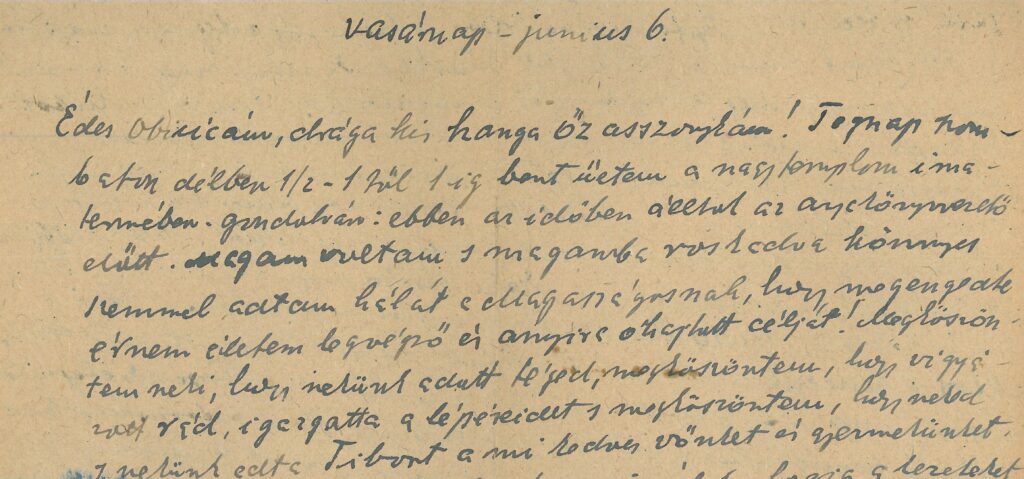 vasárnap - junius 6.
Édes Obicicám, drága kis hanga őz asszonykám! Tegnap szom-
baton délben 1/2-1 től 1-ig bent ültem a nagytemplom ima-
termében. gondolván: ebben az időben álltok az anyakönyvvezető
előtt. Magam voltam s magamba roskadva könnyes
szemmel adtam hálát a Magasságosnak, hogy megengedte
érnem életem legvégső és annyira óhajtott célját! Megköszön-
tem neki, hogy nekünk adott téged, megköszöntem, hogy vigyá-
zott rád, igazgatta a lépéseidet s megköszöntem, hogy neked
s nekünk adta Tibort a mi kedves vőnket és gyermekünket.
hogy a kezeteket